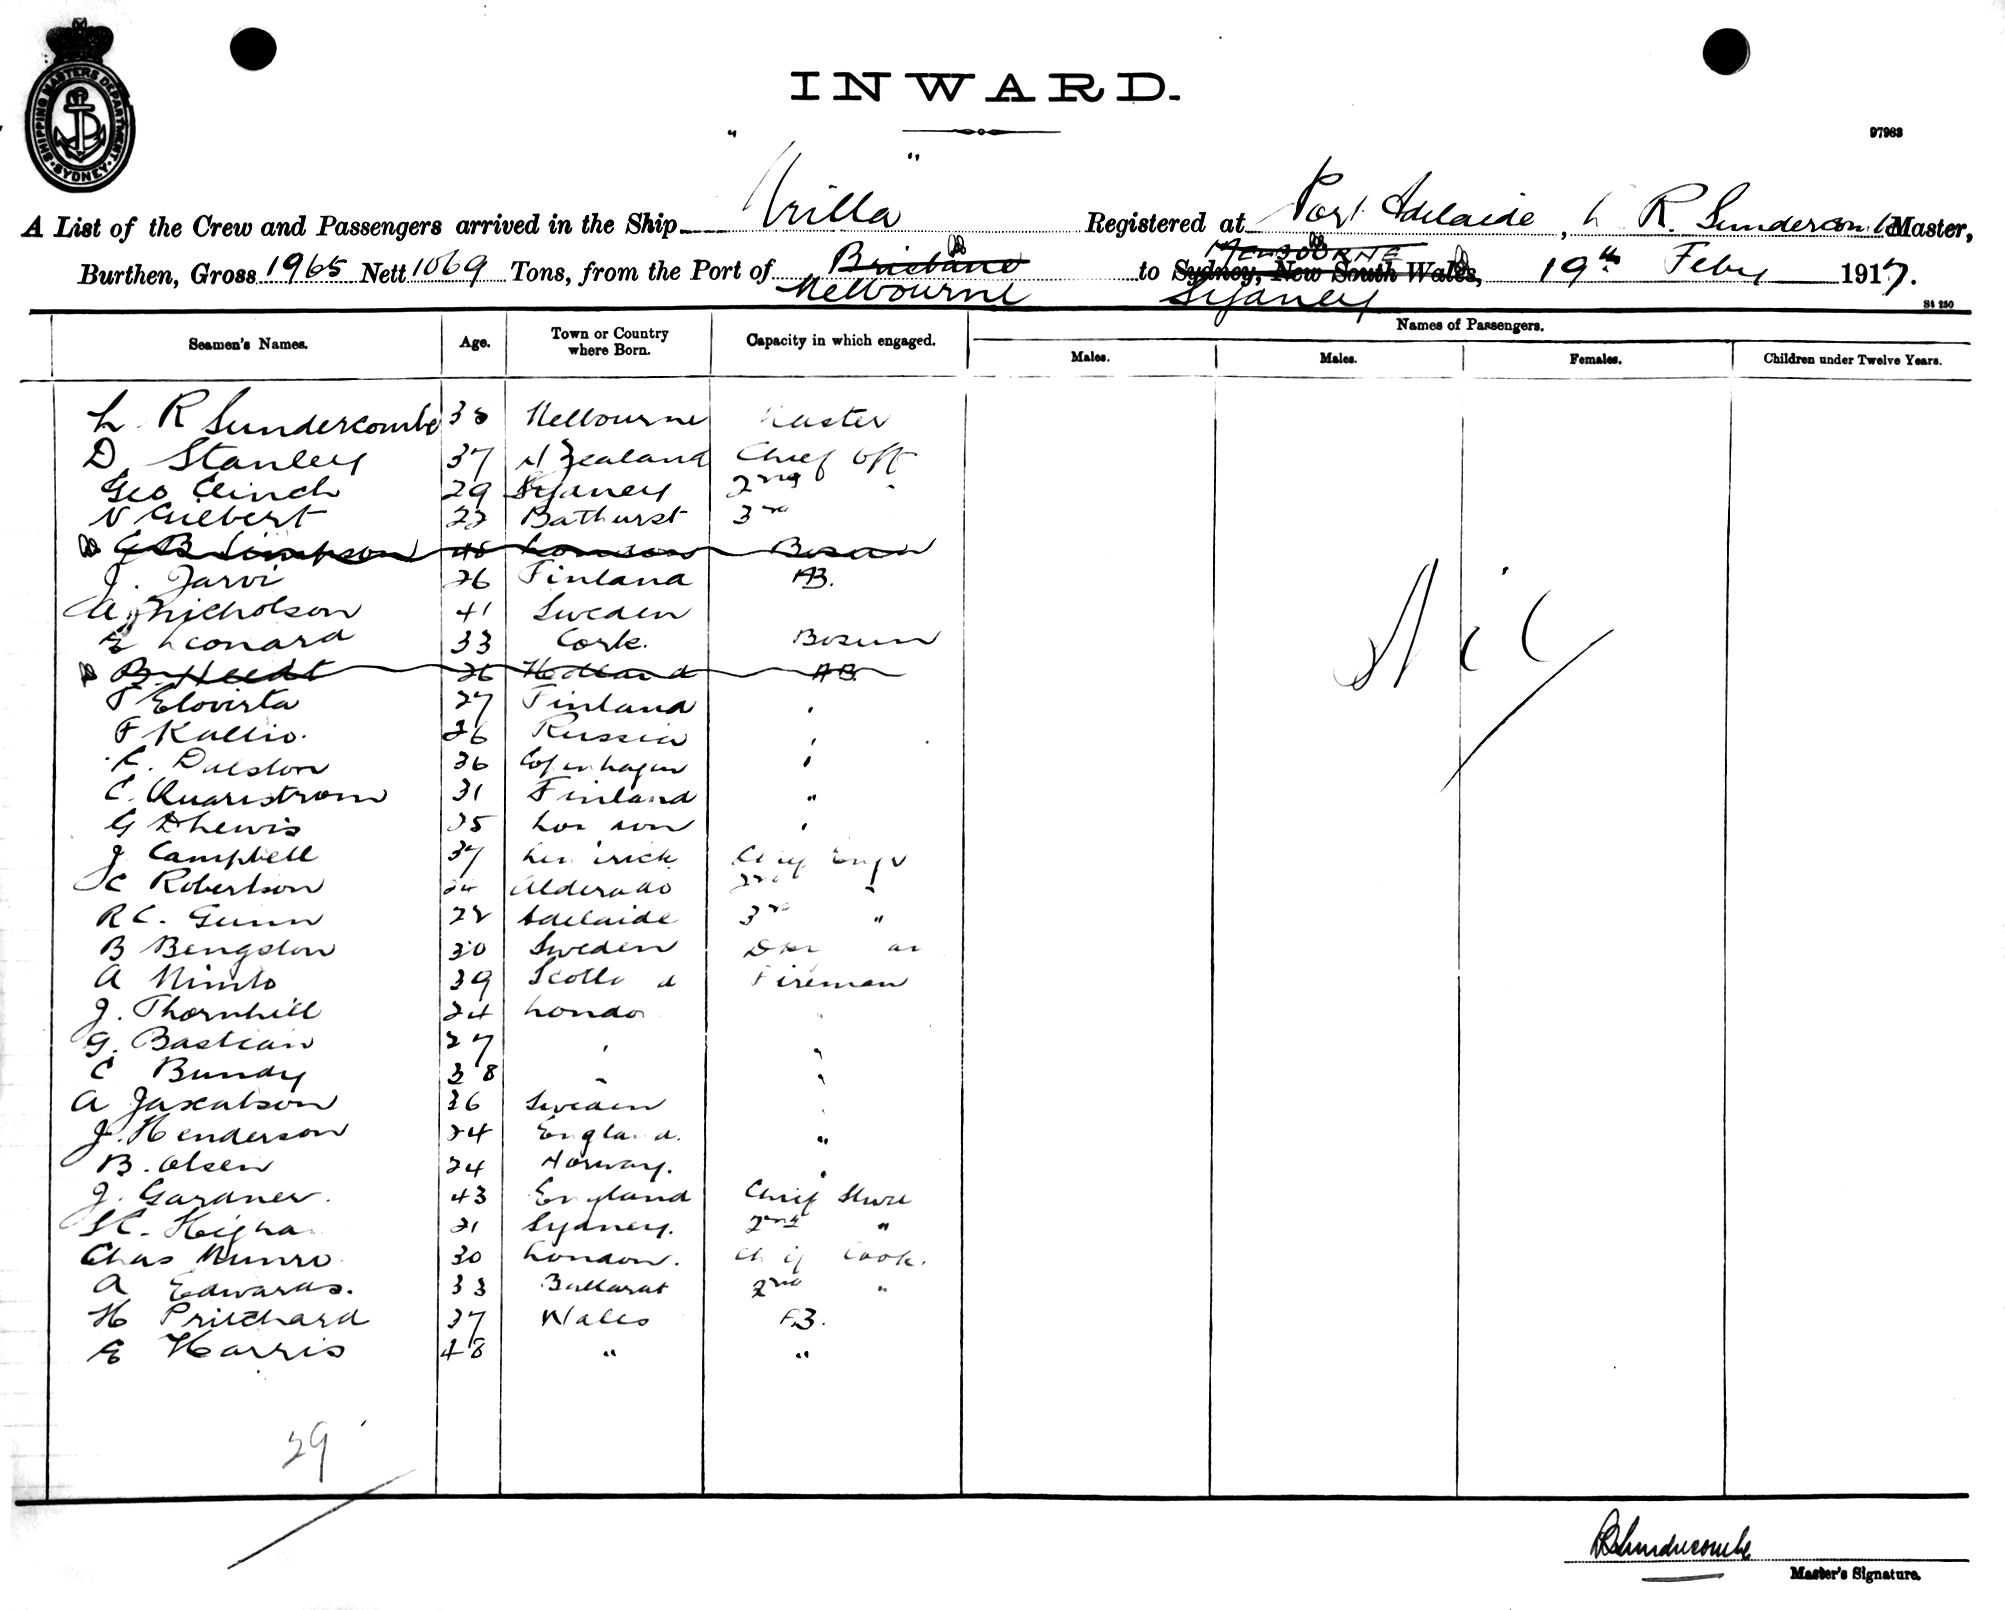 SHIPPING MASTERS DEPARTMENT. SYDNEY.
INWARD.
97983
A List of the Crew and Passengers arrived in the Ship "Urilla" Registered at Port Adelaide, L R. Sundercombe Master,
Burthen, Gross 1965 Nett 1069 Tons, from the Port of Brisbane to Sydney, New South Wales, MELBOURNE 19th Feby 1917.
Melbourne Sydney
St 250
Seamen's Names. Age. Town or Country where Born. Capacity in which engaged. Names of Passengers.
Males. Males. Females. Children under Twelve Years.
L R Sundercombe 38 Melbourne Master
D Stanley 37 N Zealand Chief Off
Geo Clinch 29 Sydney 2nd "
N Gilbert 22 Bathurst 3rd
C B Simpson 48 London Bosun
J. Jarvi 26 Finland AB.
A. Nicholson 41 Sweden
E Leonard 33 Cork. Bosun
B. Heedt 26 Holland AB.
T Elovirta 27 Finland "
F Kallio. 26 Russia "
C. Dalston 36 Copenhagen "
C. Quaristrom 31 Finland "
G D Lewis 25 London "
J Campbell 37 Limerick Chief Engr
C Robertson 24 2nd "
R C. Gunn 28 Adelaide 3rd "
B Bengston 30 Sweden
A Nimlo 39 Scotland Fireman
J. Thornhill 24 London "
G. Bastian 27 " "
C Bundy 38 " "
A Jaxalson 36 Sweden "
J. Henderson 24 England. "
B. Olsen 24 Norway. "
J. Gardner. 43 England Chief Stwd
S C. 21 Sydney. 2nd "
Chas Munro 30 London. Chief Cook.
A Edwards. 33 Ballarat 2nd "
H Pritchard 37 Wales
E Harris 48 " "
Nil
29
Sundercombe
Master's Signature.